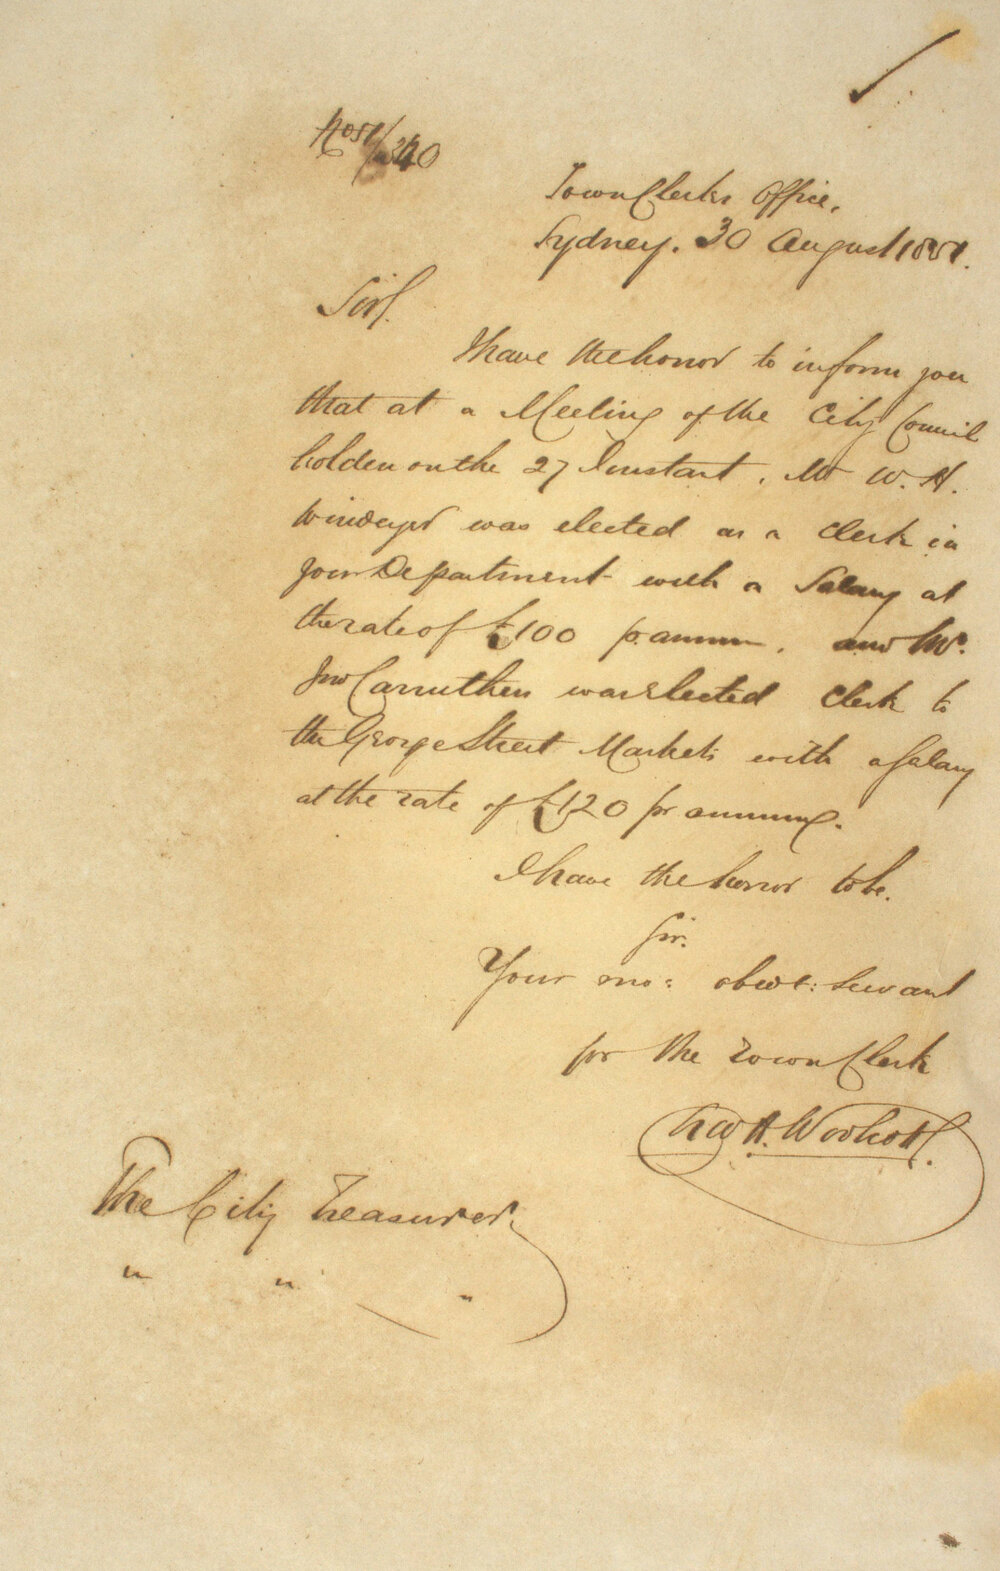 No 51/340
Town Clerks Office,
Sydney. 30 August 1851.
Sir,
I have the honor to inform you
that at a Meeting of the City Council
holden on the 27 Instant, Mr W. H.
Windeyer was elected as a Clerk in
your Department with a Salary at
the rate of £100 p. annum, and Mr.
Jno Carruthers was elected Clerk to
the George Street Markets with a Salary
at the rate of £120 pr annum.
I have the honor to be.
Sir.
Your mo: obedt: Servant
for the Town Clerk
H. Woolcott.
The City Treasurer,
" " "